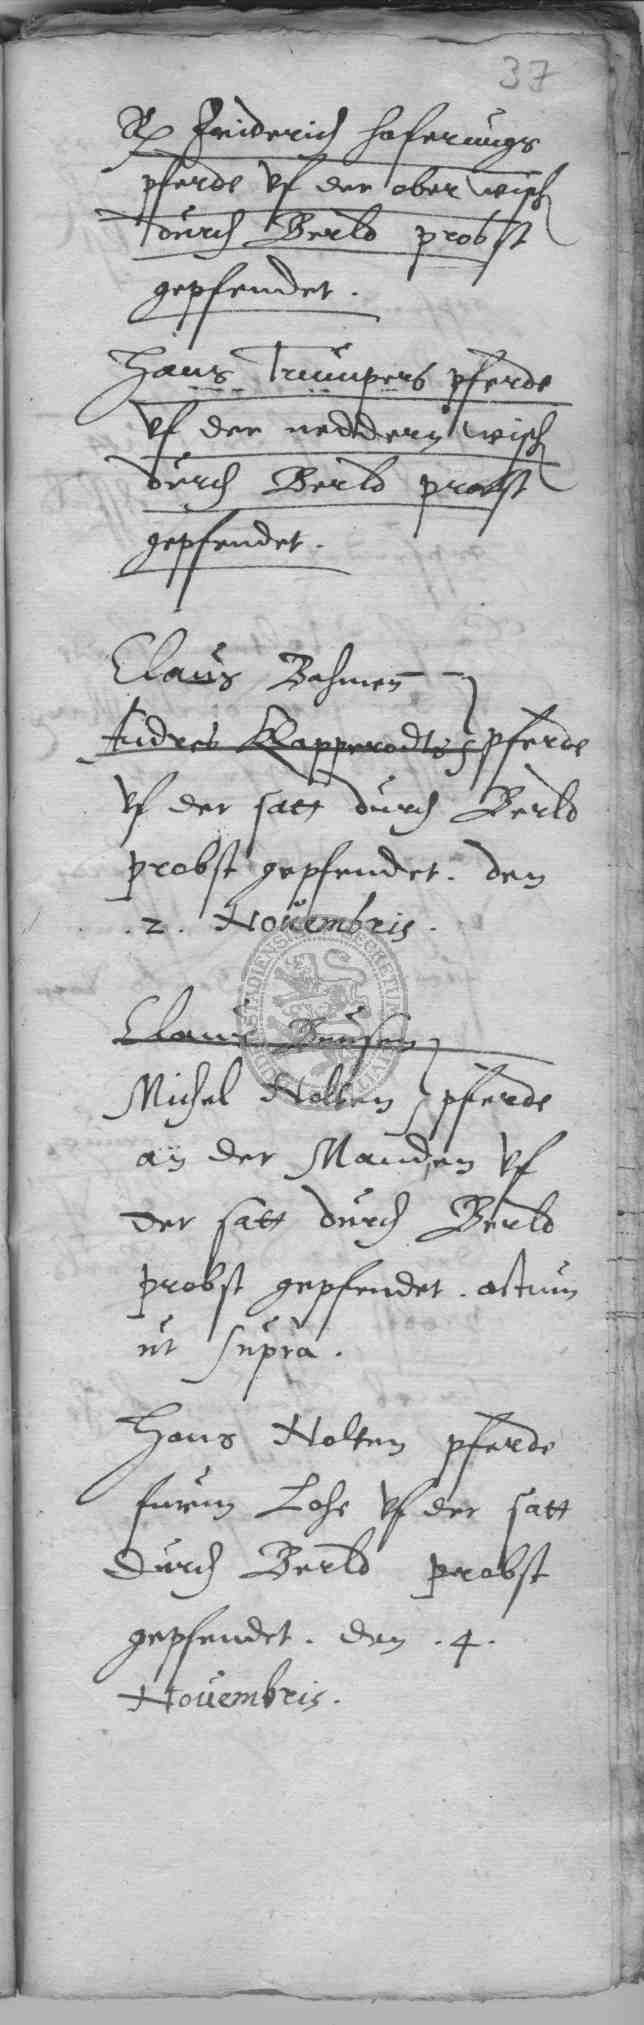 37
Friderich Haferungs
pferde vf der ober wisch
durch Berld probst
gepfendet.
Hans Trumpers pferde
vf der neddern wisch
durch Berld probst
gepfendet.
Claus Bahmen
Andres Klapperodts pferde
vf der satt durch Berld
probst gepfendet. den
.2. Nouembris.
Claus Bensen
Michel Nolten pferde
an der Mauden vf
der satt durch Berld
probst gepfendet. actum
ut supra.
Hans Nolten pferde
furm Lohe vf der satt
durch Berld probst
gepfendet. den .4.
Nouembris.